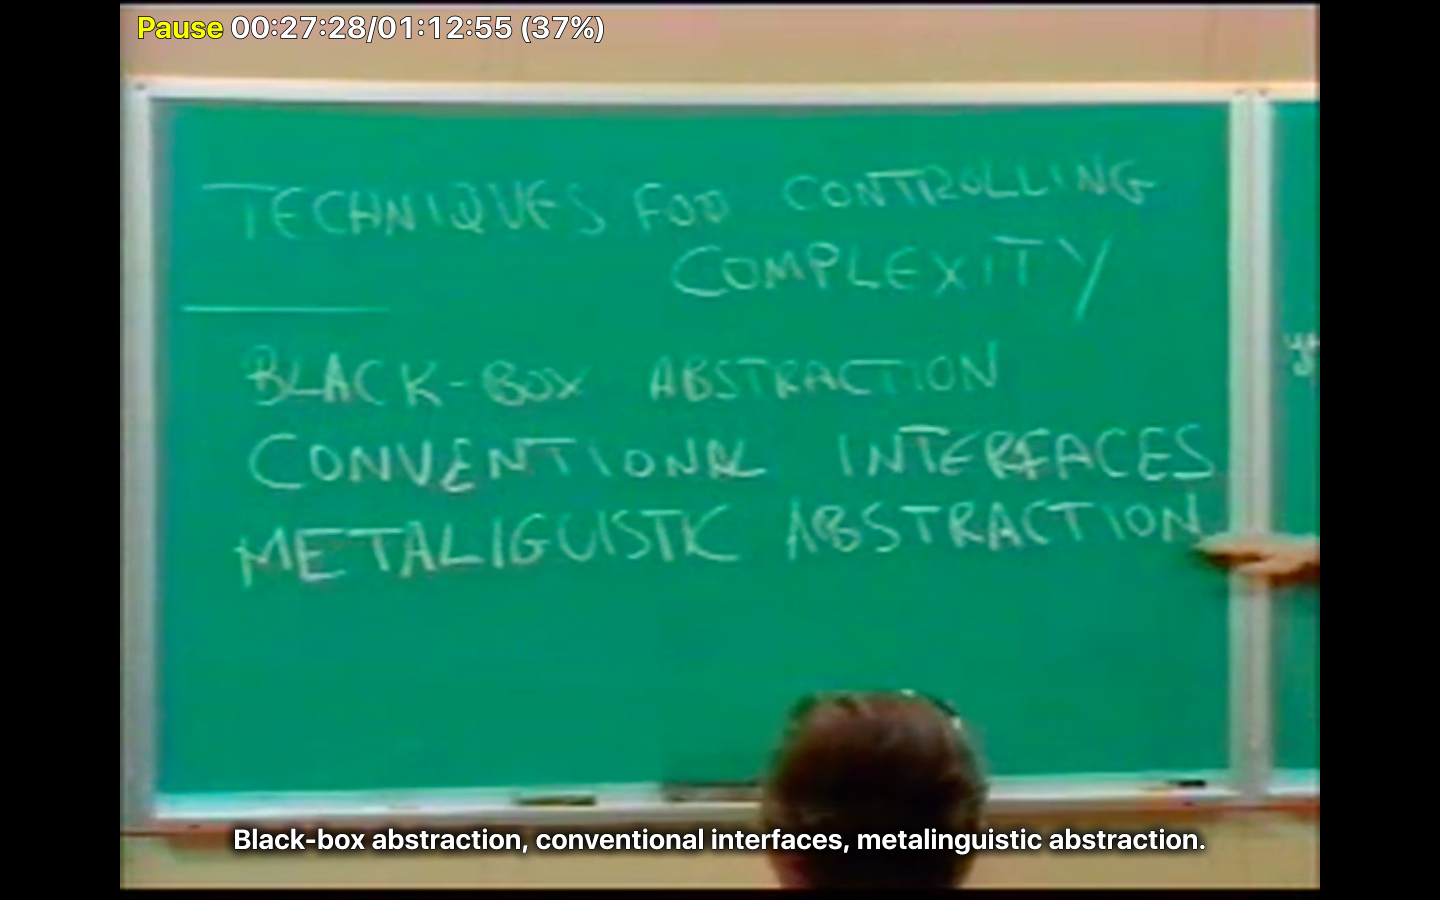 Pause 00:27:28/01:12:55 (37%)
TECHNIQUES FOR CONTROLLING
COMPLEXITY
BLACK-BOX ABSTRACTION
CONVENTIONAL INTERFACES
METALIGUISTIC ABSTRACTION
Black-box abstraction, conventional interfaces, metalinguistic abstraction.